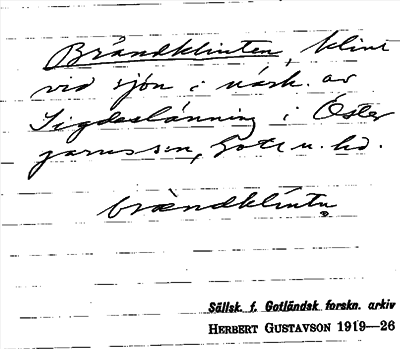 Brändklinten, klint
vid sjön i närh. av
Sigdeslänning i Öster
garns sn, Gotl n. hd.
brändklintn
Sällsk. f. Gotländsk forskn. arkiv
HERBERT GUSTAVSON 1919—26